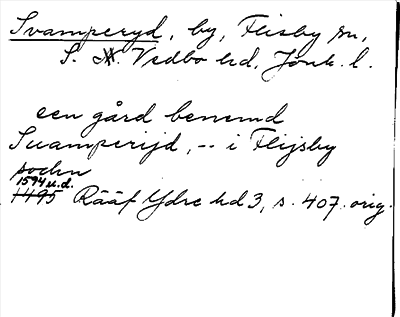 Svamperyd, by, Flisby sn,
S. N. Vedbo hd, Jönk. l.
een gård benemd
Suamperijd, -- i Flijsby
sochn
1594 u.d.
1495 Rääf Ydre hd 3, s. 407. orig.